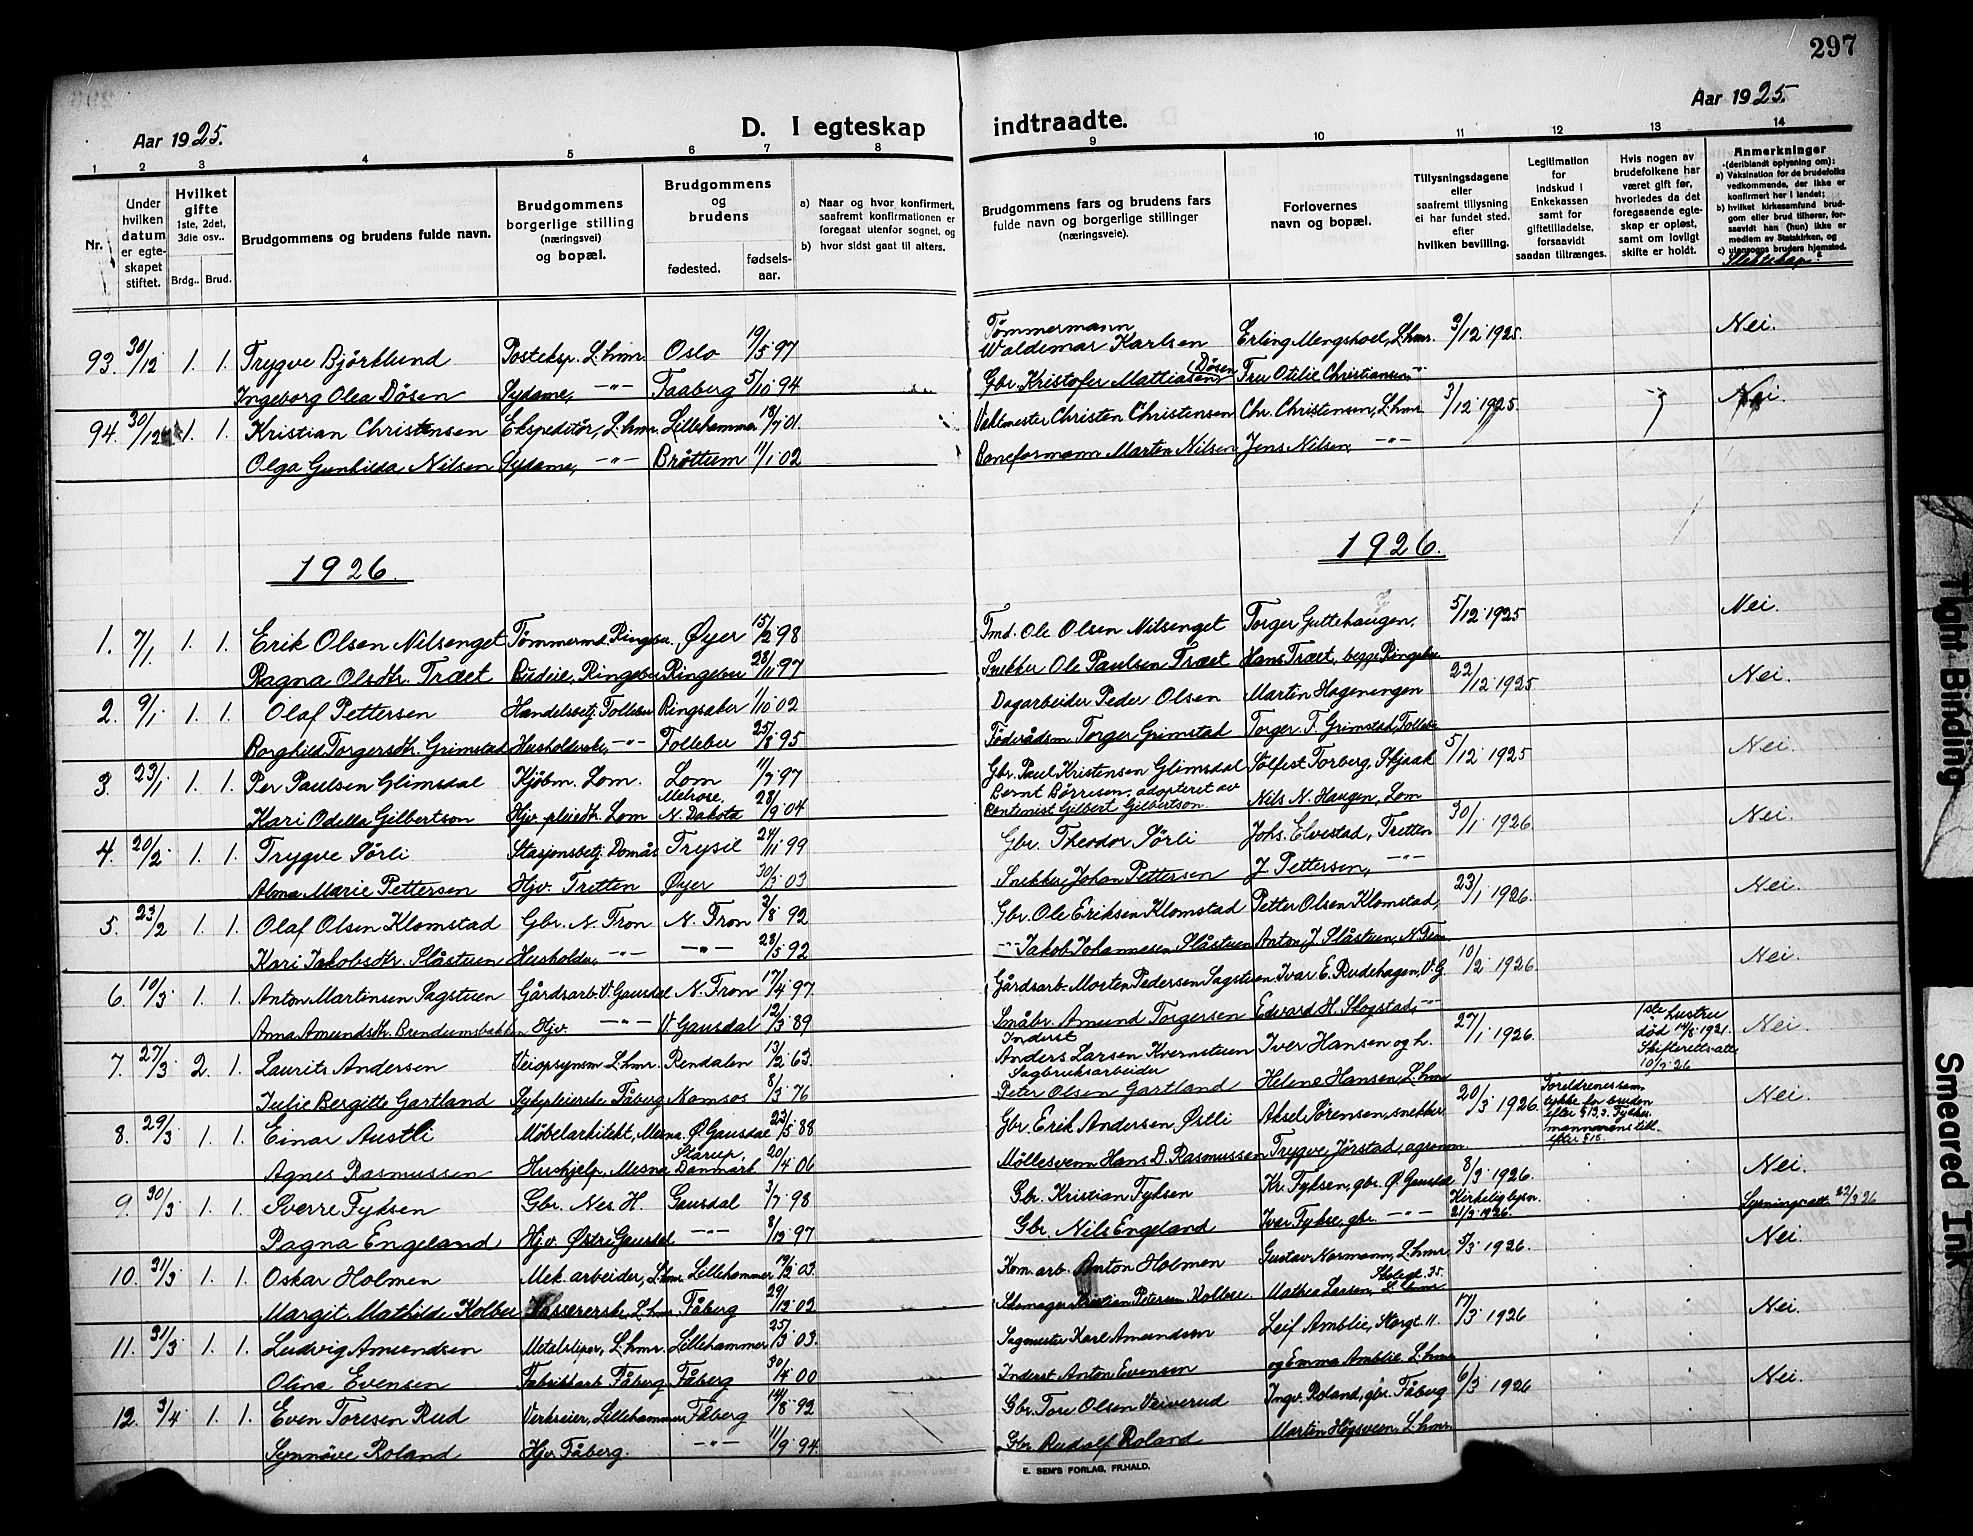 297
Aar 1925.
D. I egteskap indtraadte.
Aar 1925.
1 2 3 4 5 6 7 8 9 10 11 12 13 14
Nr.
Under hvilken datum er egte-skapet stiftet.
Hvilket gifte 1ste, 2det, 3die osv.. Brdg.. Brud.
Brudgommens og brudens fulde navn.
Brudgommens borgerlige stilling (næringsvei) og bopæl.
Brudgommens og brudens
fødested. fødsels-aar.
a) Naar og hvor konfirmert, saafremt konfirmationen er foregaat utenfor sognet, og
b) hvor sidst gaat til alters.
Brudgommens fars og brudens fars fulde navn og borgerlige stillinger (næringsveie).
Forlovernes navn og bopæl.
Tillysningsdagene eller saafremt tillysning ei har fundet sted. efter hvilken bevilling.
Legitimation for indskud i Enkekassen samt for giftetilladelse, forsaavidt saadan tiltrænges.
Hvis nogen av brudefolkene har været gift før, hvorledes da det foregaaende egte-skap er opløst, samt om lovligt skifte er holdt.
Anmerkninger
(deriblandt oplysning om):
a) Vaksination for de brudefolks vedkommende, der ikke er konfirmert her i landet;
b) hvilket kirkesamfund brud-gom eller brud tilhører, for-saavidt han (hun) ikke er medlem av Statskirken, og
c) utensogns bruders hjemsted.
Slektskap?
Tømmermann
93. 30/12 1. 1. Trygve Björklund Posteksp. L.hmr. Oslo 19/5 97 Waldemar Karlsen Erling Mengshoel, L.hmr. 3/12 1925. Nei.
Ingeborg Olea Dösen Sydame, -"- Faaberg 5/10 94 Gbr. Kristofer Mathiasen (Døsen) Fru Otilie Christiansen, -"-
94. 30/12 1. 1. Kristian Christensen Ekspeditör, L.hmr. Lillehammer 18/7 01. Vaktmester Christen Christensen Chr. Christensen, L.hmr. 3/12 1925. Nei.
Olga Gunhilda Nilsen Sydame, -"- Brøttum 11/1 02 Baneformann Martin Nilsen Jens Nilsen, -"-
1926. 1926.
1. 7/1 1. 1. Erik Olsen Nilsenget Tömmermd. Ringebu. Øyer 15/2 98 Tmd. Ole Olsen Nilsenget Torger Guttehaugen, 5/12 1925 Nei.
Ragna Olsdtr. Træet Budeie, Ringebu Ringebu 28/11 97 Snekker Ole Paulsen Træet Hans Træet, begge Ringebu
2. 9/1 1. 1. Olaf Pettersen Handelsbetj. Follebu Ringsaker 1/10 02 Dagarbeider Peder Olsen Martin Hageningen 22/12 1925 Nei.
Borghild Torgersdtr. Grimstad Husholderske, -"- Follebu 25/8 95 Føderådsm. Torger Grimstad Torger T. Grimstad, Follebu
3. 23/1 1. 1. Per Paulsen Glimsdal Kjöbm. Lom. Lom 11/7 97 Gbr. Paul Kristensen Glimsdal Solfest Forberg, Skjaak 5/12 1925 Nei.
Kari Odella Gilbertson Hjv. pleiedtr. Lom Melrose, N. Dakota 28/9 04 Bernt Børresen, adopteret av Rentenist Gilbert Gilbertson. Nils N. Haugen, Lom
4. 20/2 1. 1. Trygve Sörli Stasjonsbetj. Domås Trysil 24/11 99 Gbr. Theodor Sörli Johs. Elvestad, Tretten 30/1 1926. Nei.
Alma Marie Pettersen Hjv. Tretten Øyer 30/3 03 Snekker Johan Pettersen J. Pettersen, -"-
5. 23/2 1. 1. Olaf Olsen Klomstad Gbr. N. Fron N. Fron 3/8 92 Gbr. Ole Eriksen Klomstad Petter Olsen Klomstad, 23/1 1926. Nei.
Kari Jakobsdtr. Slåstuen Husholder, -"- -"- 28/5 92 -"- Jakob Johannesen Slåstuen Anton J. Slåstuen, N. Fron
6. 10/3 1. 1. Anton Martinsen Sagstuen Gårdsarb. V. Gausdal N. Fron 17/4 97 Gårdsarb. Morten Pedersen Sagstuen Ivar E. Rudehagen, V. G. 10/2 1926. Nei.
Anna Amundsdtr. Brendumsbakken Hjv. -"- V. Gausdal 12/3 89 Småbr. Amund Torgersen Edvard H. Skogstad, -"-
7. 27/3 2. 1. Laurits Andersen Veiopsynsm. L.hmr. Rendalen 13/2 63. Inderst Anders Larsen Kvernstuen Iver Hansen og h. 27/1 1926. 1ste hustru død 14/8 1921. Skifterettsatt. 10/2 26 Nei.
Julie Bergitte Gartland Sykepleierske, Fåberg Namsos 8/3 76 Sagbruksarbeider Peter Olsen Gartland Helene Hansen, L.hmr.
8. 29/3 1. 1. Einar Austli Møbelarkitekt, Mesna. Ø. Gausdal 23/5 88 Gbr. Erik Andersen Østli Aksel Sørensen, snekker 20/3 1926. Foreldrenes sam- tykke for bruden efter § 13 3. Fylkes- mannens till. efter § 18. Nei.
Agnes Rasmussen Hushjelp, Mesna Starup, Danmark 20/4 06 Møllesvenn Hans D. Rasmussen Trygve Jörstad, agronom
9. 30/3 1. 1. Sverre Fyksen Gbr. Nes H. Gausdal 3/7 98 Gbr. Kristian Fyksen Kr. Fyksen, gbr. Ø. Gausdal 8/3 1926. Kirkelig lysn. 21/3 1926. Nei.
Ragna Engeland Hjv. Østre Gausdal -"- 8/12 97 Gbr. Nils Engeland Ivar Fykse, gbr. -"- Lysningsatt. 22/3 26
10. 31/3 1. 1. Oskar Holmen Mek. arbeider, L.hmr. Lillehammer 19/2 03. Kom. arb. Anton Holmen Gustav Normann, L.hmr. 5/3 1926. Nei.
Margit Mathilde Kolbu Kassererske, L.hmr. Fåberg 29/12 02 Skomager Kristian Petersen Kolbue. Mathea Larsen, Skolegt. 35. L.hmr.
11. 31/3 1. 1. Ludvig Amundsen Metalsliper, L.hmr. Lillehammer 25/3 03. Sagmester Karl Amundsen Leif Amblie, Storgt. 11. 17/3 1926 Nei.
Olina Evensen Fabrikkarb. Fåberg Fåberg 30/4 00 Inderst Anton Evensen og Emma Amblie, L.hmr.
12. 3/4 1. 1. Even Toresen Rud Verkseier, Lillehammer Fåberg 14/8 92 Gbr. Tore Olsen Veiverud Ingv. Roland, gbr. Fåberg 6/3 1926 Nei.
Synnöve Roland Hjv. Fåberg. -"- 11/9 94. Gbr. Rudolf Roland Martin Högsveen, L.hmr.
E. SEM'S FORLAG, FR.HALD.
Tight Binding
Smeared Ink